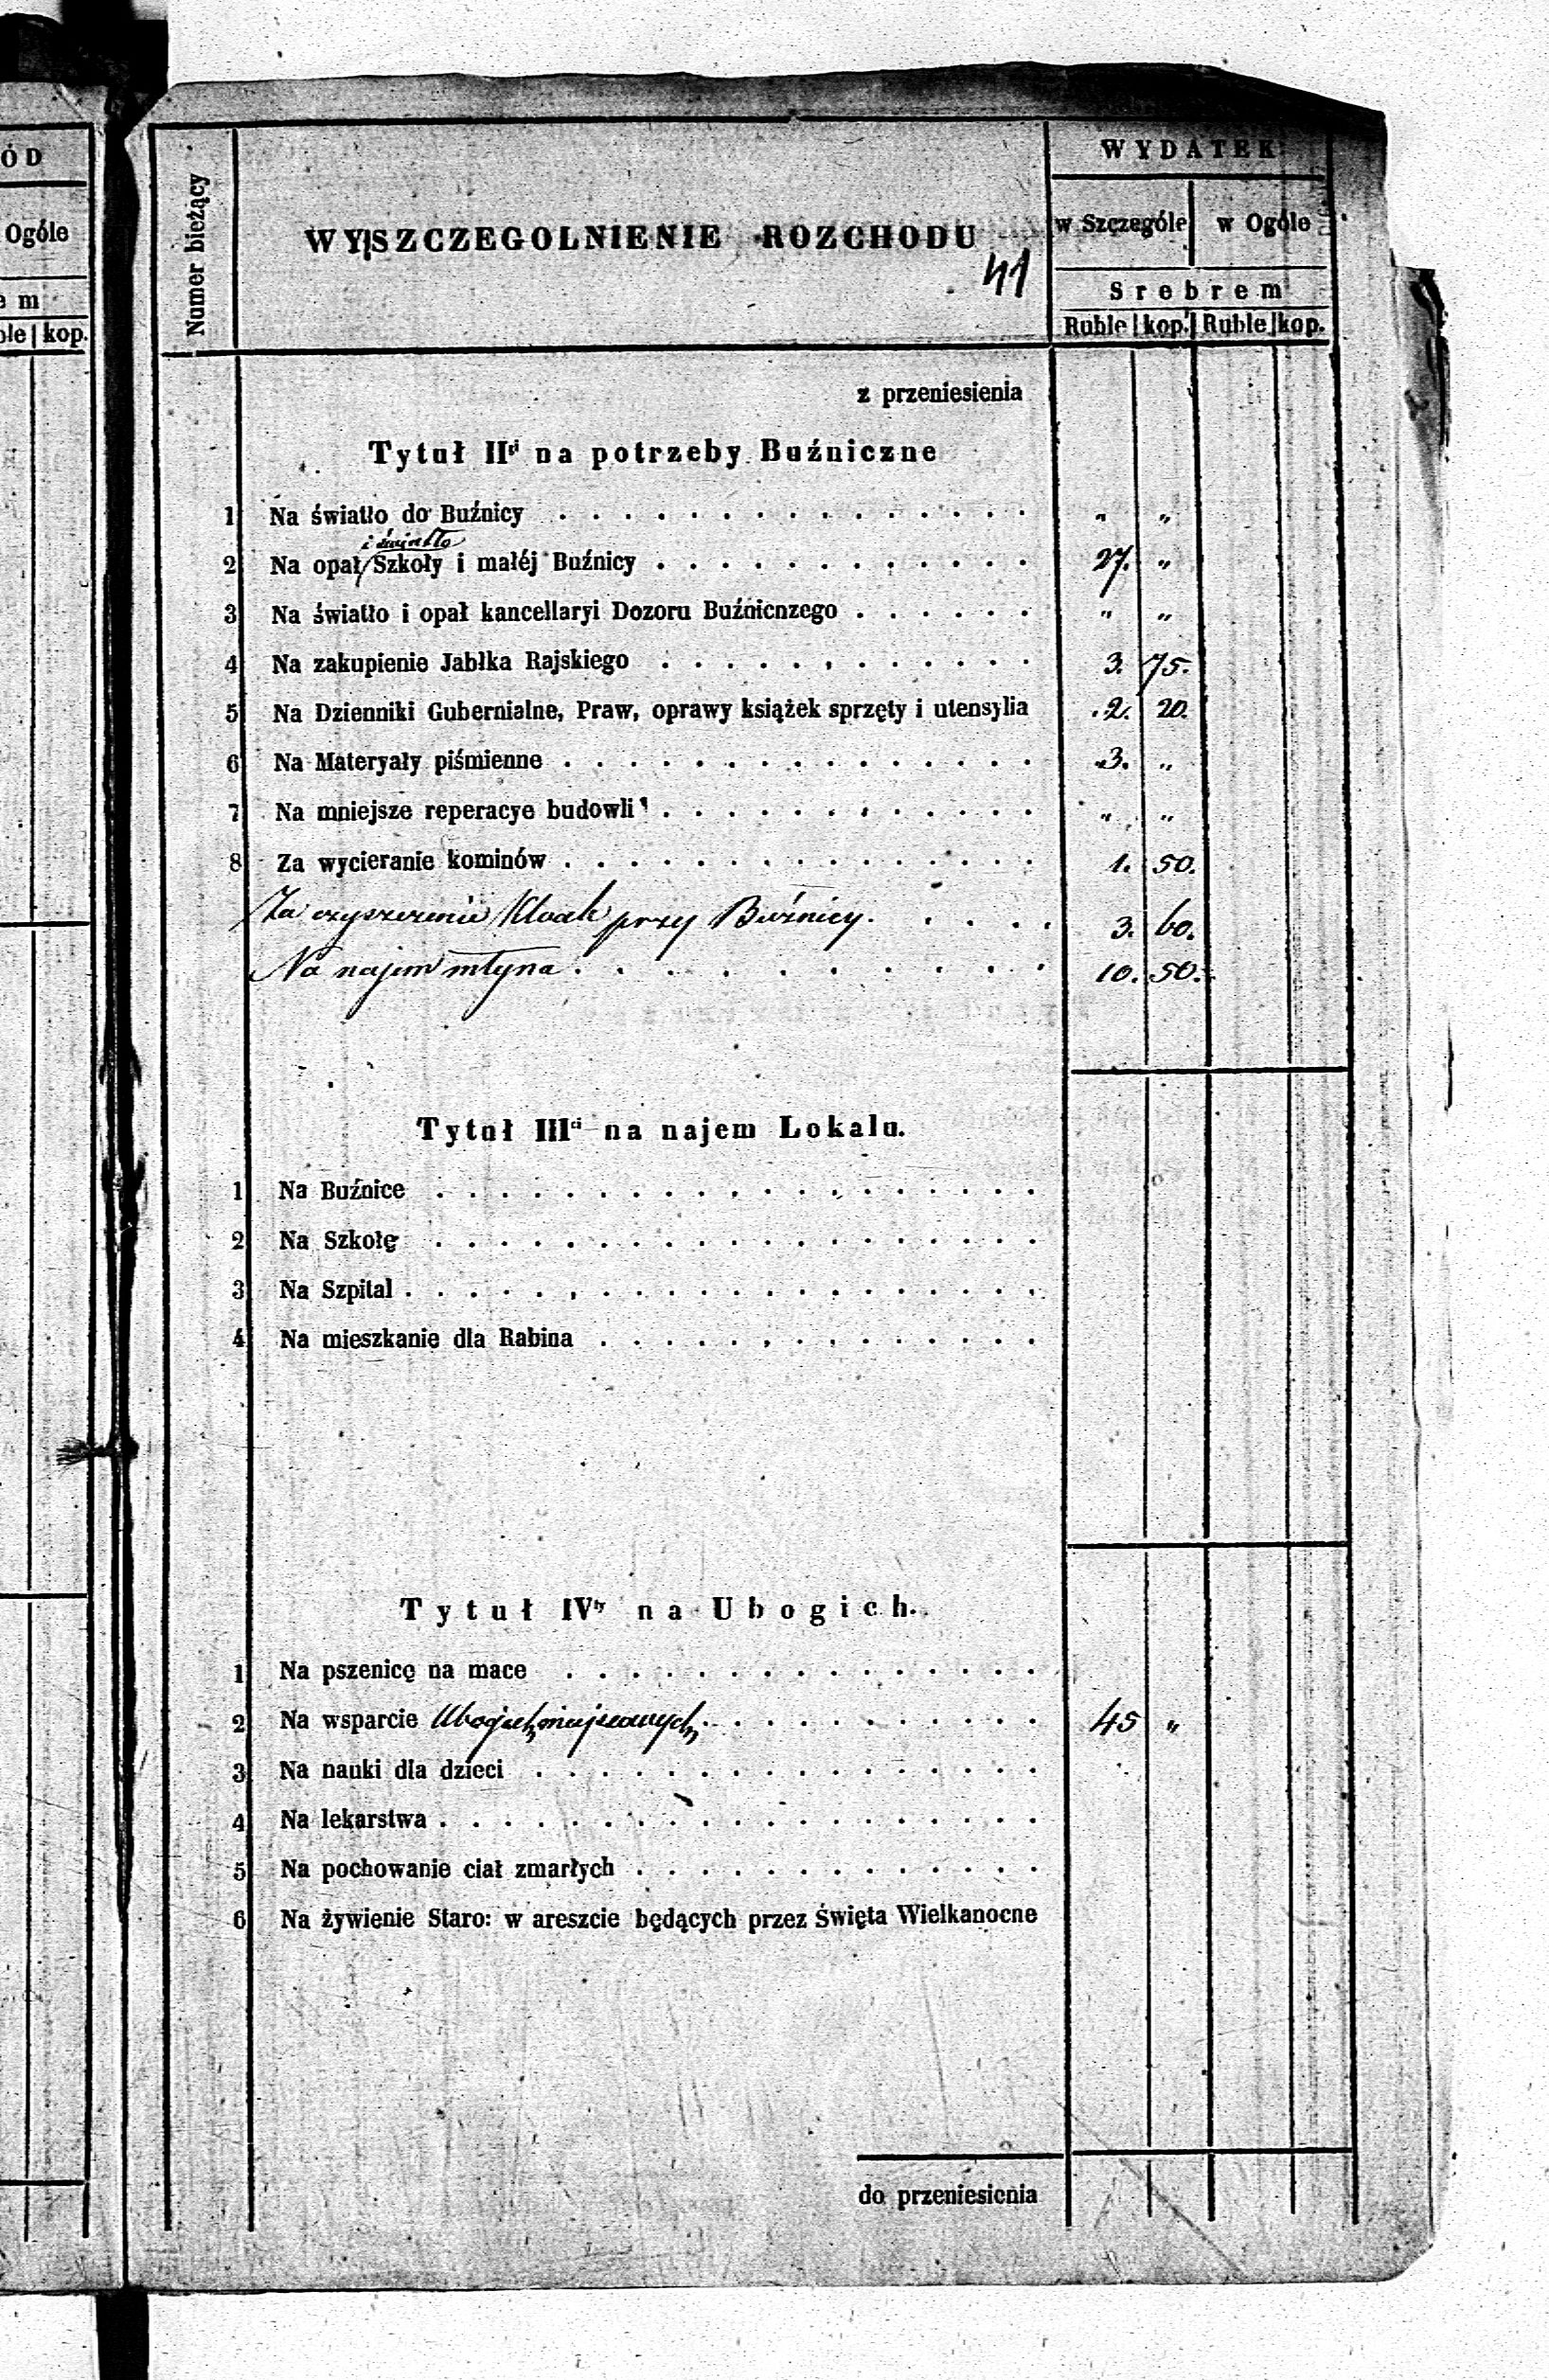 ÓD
Ogóle
e m
ble kop.
Numer bieżący
WYSZCZEGOLNIENIE ROZCHODU
41
WYDATEK
w Szczególe w Ogóle
Srebrem
Ruble kop. Ruble kop.
z przeniesienia
Tytuł IIgi na potrzeby Buźniczne
1 Na światło do Buźnicy . . . . . . . . . . . . . . . " "
i światło
2 Na opał/Szkoły i małéj Buźnicy . . . . . . . . . . . . 27. "
3 Na światło i opał kancellaryi Dozoru Buźnicnzego . . . . . . " "
4 Na zakupienie Jabłka Rajskiego . . . . . . . . . . . . 3. 75.
5 Na Dzienniki Gubernialne, Praw, oprawy książek sprzęty i utensylia 2. 20.
6 Na Materyały piśmienne . . . . . . . . . . . . . . . 3. "
7 Na mniejsze reperacye budowli . . . . . . . . . . . . " "
8 Za wycieranie kominów . . . . . . . . . . . . . . . 1. 50.
Za czyszczenie Kloak przy Buźnicy . . . . . 3. 60.
Na najem młyna . . . . . . . . . . . . 10. 50.
Tytuł IIIci na najem Lokalu.
1 Na Buźnice . . . . . . . . . . . . . . . . . . .
2 Na Szkołę . . . . . . . . . . . . . . . . . . .
3 Na Szpital . . . . . . . . . . . . . . . . . . . .
4 Na mieszkanie dla Rabina . . . . . . . . . . . . . .
Tytuł IVty na Ubogich.
1 Na pszenicę na mace . . . . . . . . . . . . . . .
2 Na wsparcie Ubogich miejscowych . . . . . . . . . . . 45 "
3 Na nauki dla dzieci . . . . . . . . . . . . . . . .
4 Na lekarstwa . . . . . . . . . . . . . . . . . . .
5 Na pochowanie ciał zmarłych . . . . . . . . . . . . .
6 Na żywienie Staro: w areszcie będących przez Święta Wielkanocne
do przeniesienia